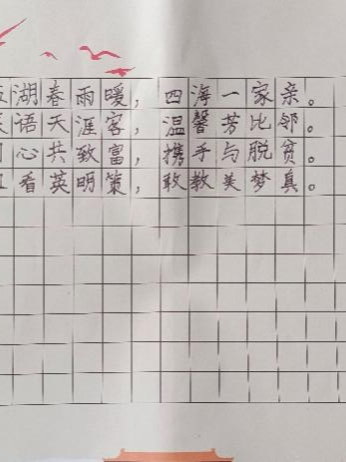 湖春雨暖，四海一家亲。
语天涯客，温馨芳比邻。
心共致富，携手与脱贫。
看英明策，敢教美梦真。